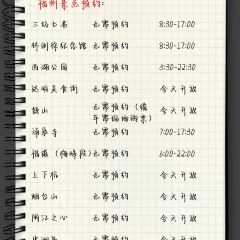 福州景点预约:
三坊七巷 无需预约 8:30-17:00
林则徐纪念馆 无需预约 8:30-17:00
西湖公园 无需预约 5:30-22:30
达明美食街 无需预约 全天开放
鼓山 无需预约 (缆车需购票) 全天开放
涌泉寺 无需预约 7:00-17:30
福道 (梅峰段) 无需预约 6:00-22:00
上下杭 无需预约 全天开放
烟台山 无需预约 全天开放
闽江之心 无需预约 全天开放